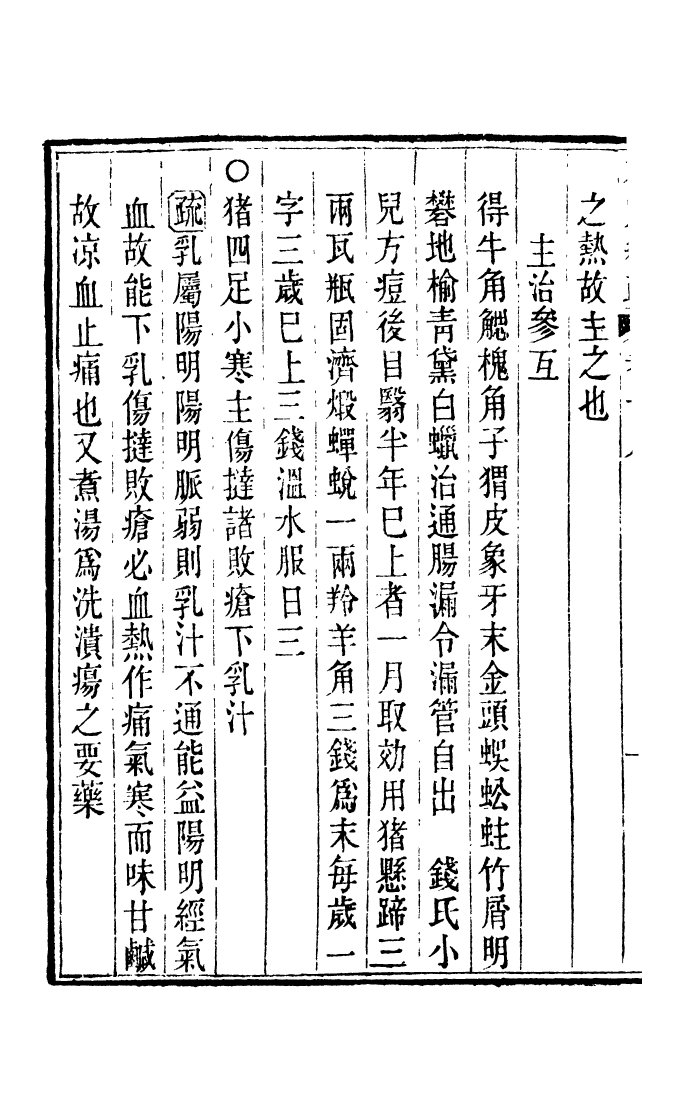 之熱故主之也
主治參互
得牛角䚡槐角子猬皮象牙末金頭蜈蚣蛀竹屑明
礬地榆靑黛白蠟治通腸漏令漏管自出　錢氏小
兒方痘後目翳半年巳上者一月取効用猪懸蹄三
兩瓦瓶固濟煅蟬蛻一兩羚羊角三錢爲末每歲一
字三歲巳上三錢溫水服日三
○猪四足小寒主傷撻諸敗瘡下乳汁
疏乳屬陽明陽明脈弱則乳汁不通能益陽明經氣
血故能下乳傷撻敗瘡必血熱作痛氣寒而味甘鹹
故凉血止痛也又煮湯爲洗潰瘍之要藥